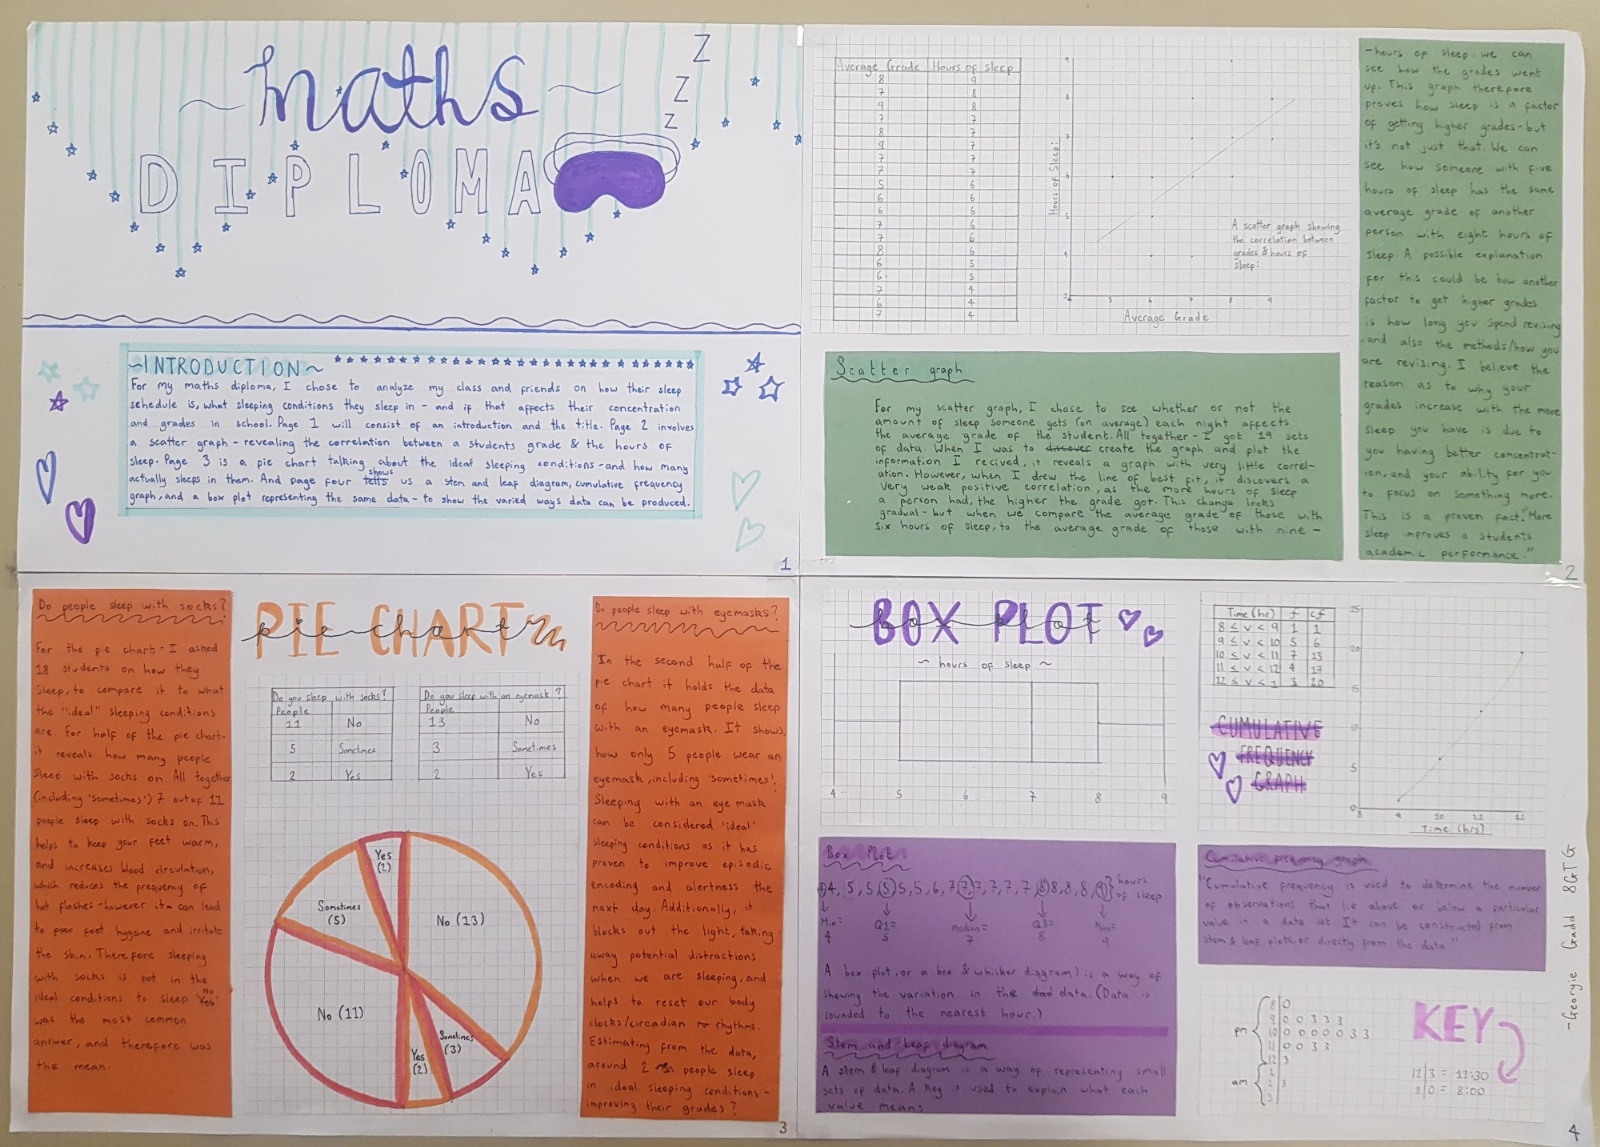 maths
DIPLOMA
Z
Z
Z
~INTRODUCTION~
For my maths diploma, I chose to analyze my class and friends on how their sleep
sehedule is, what sleeping conditions they sleep in - and if that affects their concentration
and grades in school. Page 1 will consist of an introduction and the title. Page 2 involves
a scatter graph - revealing the correlation between a students grade & the hours of
sleep. Page 3 is a pie chart talking about the ideal sleeping conditions - and how many
actually sleeps in them. And page four tells shows us a stem and leaf diagram, cumulative frequency
graph, and a box plot representing the same data - to show the varied ways data can be produced.
1
Average Grade Hours of sleep
8 9
7 8
9 8
7 7
8 7
9 7
7 7
7 7
5 6
6 6
6 6
7 6
7 6
8 6
6 5
6 5
7 4
6 4
7 4
Hours of Sleep:
Average Grade
A scatter graph showing
the correlation between
grades & hours of
sleep:
Scatter graph
For my scatter graph, I chose to see whether or not the
amount of sleep someone gets (on average) each night affects
the average grade of the student. All together - I got 19 sets
of data. When I was to discover create the graph and plot the
information I recived, it reveals a graph with very little correl-
ation. However, when I drew the line of best fit, it discovers a
very weak positive correlation, as the more hours of sleep
a person had, the higher the grade got. This change looks
gradual - but when we compare the average grade of those with
six hours of sleep, to the average grade of those with nine -
- hours of sleep. we can
see how the grades went
up. This graph therefore
proves how sleep is a factor
of getting higher grades - but
it's not just that. We can
see how someone with five
hours of sleep has the same
average grade of another
person with eight hours of
sleep. A possible explanation
for this could be how another
factor to get higher grades
is how long you spend revising
and also the methods/how you
are revising. I believe the
reason as to why your
grades increase with the more
sleep you have is due to
you having better concentrat-
ion, and your ability for you
to focus on something more.
This is a proven fact. "More
sleep improves a students
academic performance."
2
Do people sleep with socks?
For the pie chart - I asked
18 students on how they
sleep, to compare it to what
the "ideal" sleeping conditions
are. For half of the pie chart-
it reveals how many people
sleep with socks on. All together
(including 'sometimes') 7 out of 11
people sleep with socks on. This
helps to keep your feet warm,
and increases blood circulation,
which reduces the frequency of
hot flashes - however it can lead
to poor foot hygene and irritate
the skin. Therefore sleeping
with socks is not in the
ideal conditions to sleep. 'Yes' No
was the most common
answer, and therefore was
the mean.
PIE CHART
pie chart
Do you sleep with socks?
People
11 No
5 Sometimes
2 Yes
Do you sleep with an eyemask?
People
13 No
3 Sometimes
2 Yes
Yes
(2)
No (13)
Sometimes
(5)
No (11)
Yes
(2)
Sometimes
(3)
Do people sleep with eyemasks?
In the second half of the
pie chart it holds the data
of how many people sleep
with an eyemask. It shows
how only 5 people wear an
eyemask, including 'sometimes'.
Sleeping with an eye mask
can be considered 'ideal'
sleeping conditions as it has
proven to improve episodic
encoding and alertness the
next day. Additionally, it
blocks out the light, taking
away potential distractions
when we are sleeping, and
helps to reset our body
clocks/circadian rhythms.
Estimating from the data,
around 2 people sleep
in ideal sleeping conditions -
improving their grades?
3
BOX PLOT
box plot
~ hours of sleep ~
4 5 6 7 8 9
Time (hr) f cf
8 ≤ v < 9 1 1
9 ≤ v < 10 5 6
10 ≤ v < 11 7 13
11 ≤ v < 12 4 17
12 ≤ v < 1 3 20
CUMULATIVE
FREQUENCY
GRAPH
Time (hrs)
Box Plot
4, 5, 5, 5, 5, 5, 6, 7, 7, 7, 7, 7, 7, 8, 8, 8, 8, 9 } hours of sleep
Min= 4
Q1= 5
median= 7
Q3= 8
Max= 9
A box plot, or a box & whisker diagram) is a way of
showing the variation in the data. (Data is
rounded to the nearest hour.)
Stem and Leaf diagram
A stem & leaf diagram is a way of representing small
sets of data. A key is used to explain what each
value means.
Cumulative frequency graph
"Cumulative frequency is used to determine the number
of observations that lie above or below a particular
value in a data set. It can be constructed from
stem & leaf plots or directly from the data."
pm
8 | 0
9 | 0 0 3 3 3
10 | 0 0 0 0 0 3 3
11 | 0 0 3 3
12 | 3
am
1
2 | 3
3
KEY
12|3 = 12:30
8|0 = 8:00
-Georgie Gadd 8GTG
4